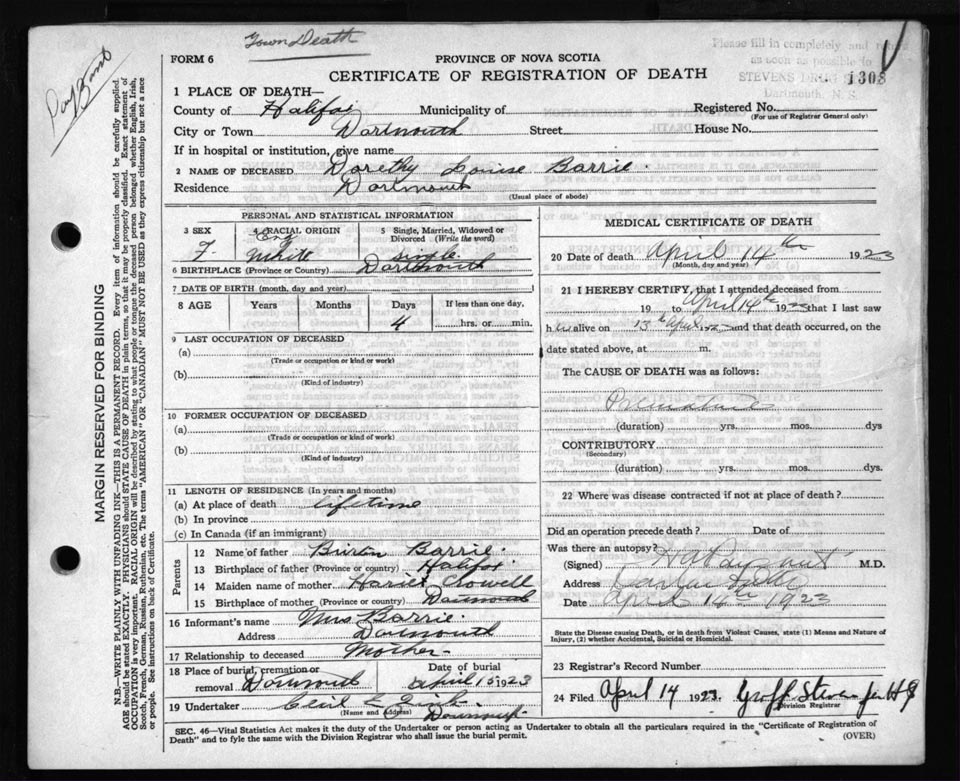 Town Death
Payzant
Please fill in completely and return
as soon as possible to
STEVENS DRUG
Dartmouth, N. S.
1308
FORM 6
PROVINCE OF NOVA SCOTIA
CERTIFICATE OF REGISTRATION OF DEATH
1 PLACE OF DEATH—
County of Halifax Municipality of Registered No.
(For use of Registrar General only)
City or Town Dartmouth Street House No.
If in hospital or institution, give name
2 NAME OF DECEASED Dorethy Louise Barrie
Residence Dartmouth
(Usual place of abode)
PERSONAL AND STATISTICAL INFORMATION
3 SEX 4 RACIAL ORIGIN 5 Single, Married, Widowed or Divorced (Write the word)
F. Eng White Single
6 BIRTHPLACE (Province or Country) Dartmouth
7 DATE OF BIRTH (month, day and year)
8 AGE Years Months Days If less than one day,
4 hrs. or min.
9 LAST OCCUPATION OF DECEASED
(a)
(Trade or occupation or kind or work)
(b)
(Kind of industry)
10 FORMER OCCUPATION OF DECEASED
(a)
(Trade or occupation or kind of work)
(b)
(Kind of industry)
11 LENGTH OF RESIDENCE (In years and months)
(a) At place of death lifetime
(b) In province
(c) In Canada (if an immigrant)
Parents
12 Name of father Burton Barrie
13 Birthplace of father (Province or country) Halifax
14 Maiden name of mother Hariet Clowell
15 Birthplace of mother (Province or country) Dartmouth
16 Informant's name Mrs Barrie
Address Dartmouth
17 Relationship to deceased Mother
18 Place of burial, cremation or removal Dartmouth Date of burial April 15 1923
19 Undertaker Cecil E Zink
(Name and Address) Dartmouth
MEDICAL CERTIFICATE OF DEATH
20 Date of death April 14th 1923
(Month, day and year)
21 I HEREBY CERTIFY, that I attended deceased from
19 to April 14th 1923 that I last saw
h er alive on 13th April 1923 and that death occurred, on the
date stated above, at m.
The CAUSE OF DEATH was as follows:
Premature
(duration) yrs. mos. dys
CONTRIBUTORY
(Secondary)
(duration) yrs. mos. dys.
22 Where was disease contracted if not at place of death?
Did an operation precede death? Date of
Was there an autopsy?
(Signed) H A Payzant M.D.
Address Dartmouth
Date April 14th 1923
State the Disease causing Death, or in death from Violent Causes, state (1) Means and Nature of
Injury, (2) whether Accidental, Suicidal or Homicidal.
23 Registrar's Record Number
24 Filed April 14 1923. Stevens
Division Registrar
SEC. 46—Vital Statistics Act makes it the duty of the Undertaker or person acting as Undertaker to obtain all the particulars required in the "Certificate of Registration of
Death" and to fyle the same with the Division Registrar who shall issue the burial permit.
(OVER)
MARGIN RESERVED FOR BINDING
N.B.—WRITE PLAINLY WITH UNFADING INK—THIS IS A PERMANENT RECORD. Every item of information should be carefully supplied.
AGE should be stated EXACTLY. PHYSICIANS should STATE CAUSE OF DEATH in plain terms, so that it may be properly classified. Exact statement of
OCCUPATION is very important. RACIAL ORIGIN will be described by stating to what people or tongue the deceased person belonged whether English, Irish,
Scotch, French, German, Russian, Ruthenian, etc. The terms "AMERICAN" OR "CANADIAN" MUST NOT BE USED as they express citizenship but not a race
or people. See instructions on back of Certificate.